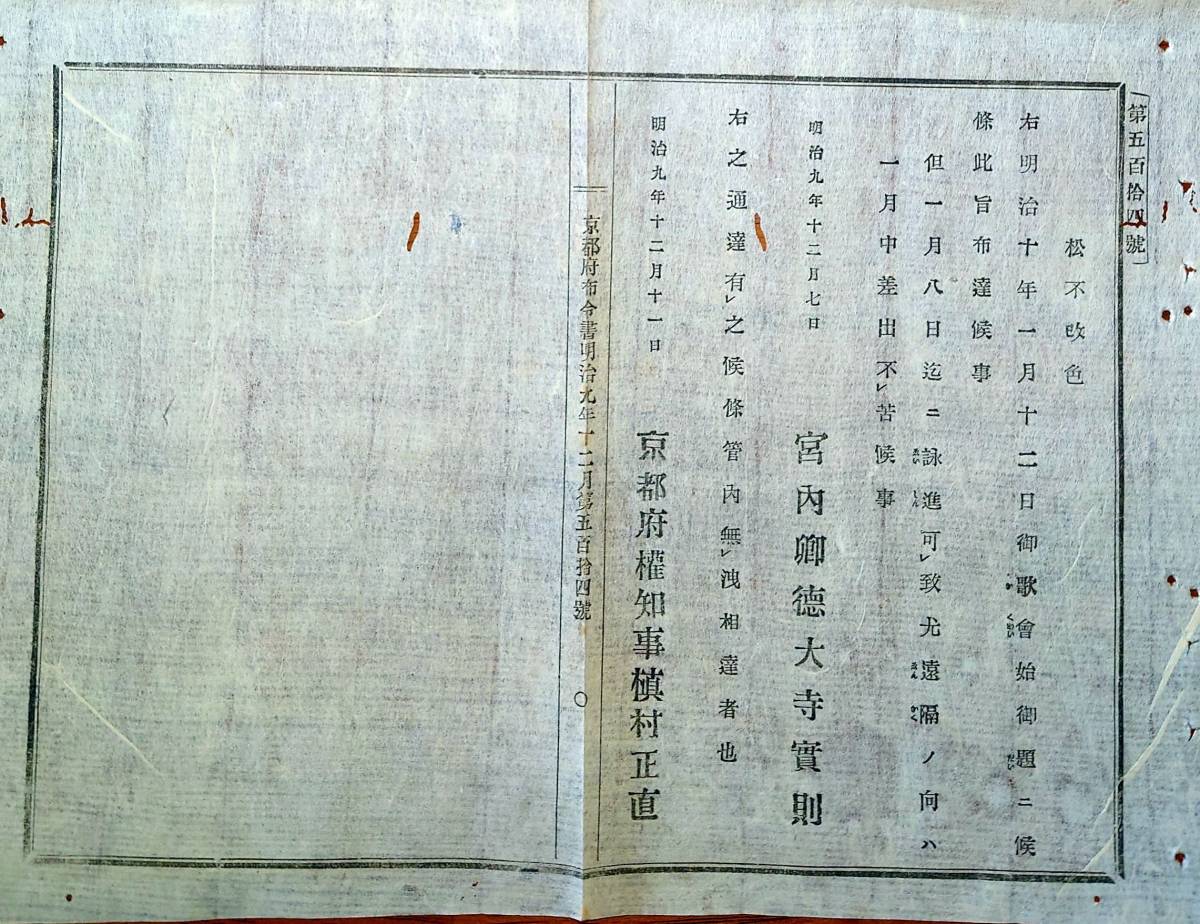 第五百拾四號
松不改色
右明治十年一月十二日御歌會始御題ニ候
條此旨布達候事
但一月八日迄ニ詠進可㆑致尤遠隔ノ向ハ
一月中差出不㆑苦候事
明治九年十二月七日
宮內卿德大寺實則
右之通達有㆑之候條管內無㆑洩相達者也
明治九年十二月十一日
京都府權知事槇村正直
京都府布令書明治九年十二月第五百拾四號 〇